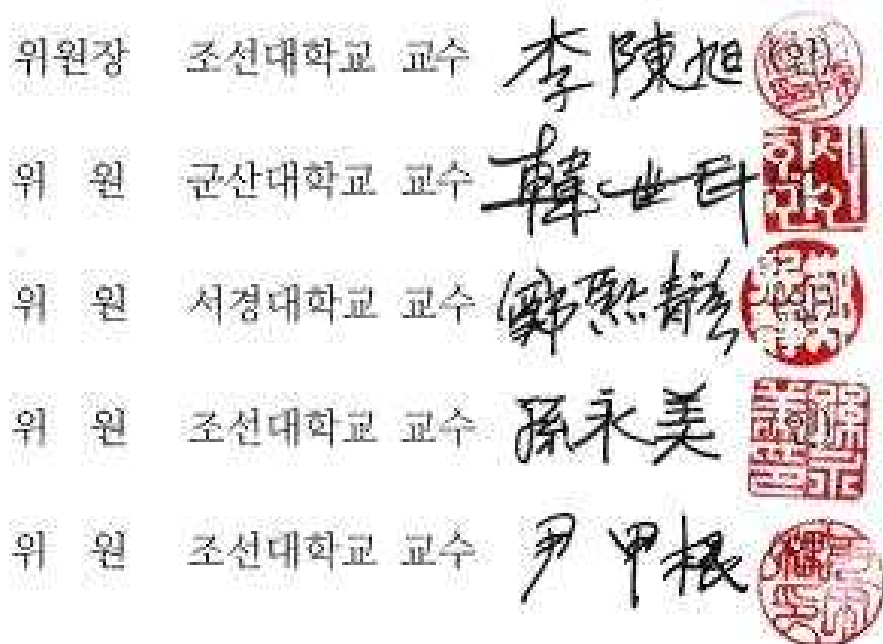 위원장 조선대학교 교수 李陳旭
위 원 군산대학교 교수 韓世
위 원 서경대학교 교수 鄭熙靜
위 원 조선대학교 교수 孫永美
위 원 조선대학교 교수 尹甲根